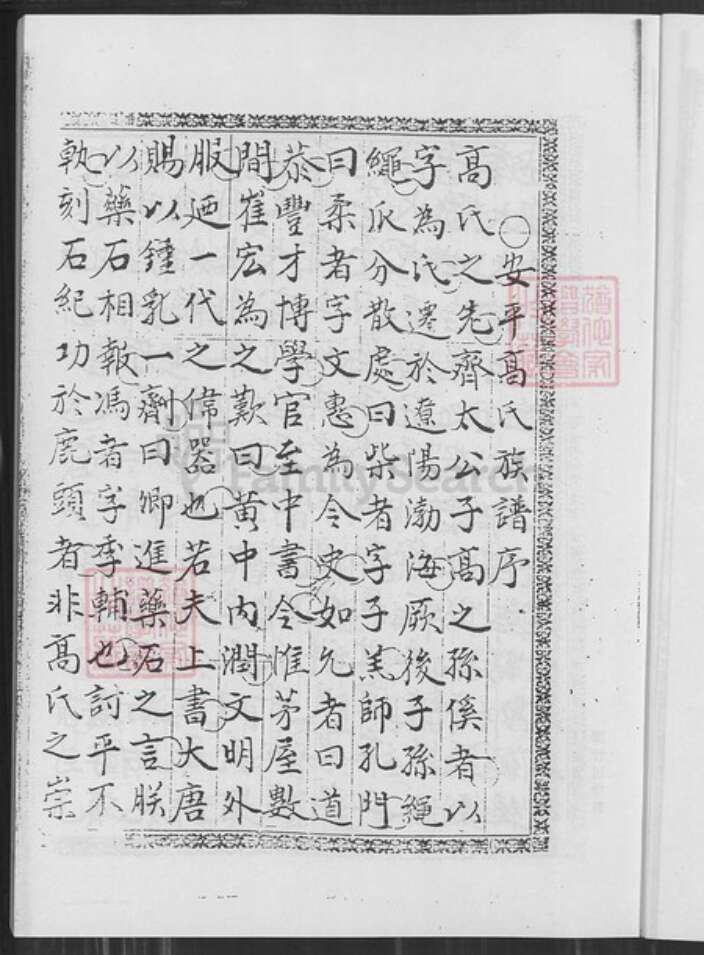 ○安平高氏族譜序
高氏之先齊太公子高之孫傒者以
字為氏遷於遼陽渤海厥後子孫繩
繩瓜分散處曰柴者字子羔師孔門
曰柔者字文惠為令史如允者曰道
恭豐才博學官至中書令惟茅屋數
間崔宏為之歎曰黃中內潤文明外
服迺一代之偉器也若夫上書大唐
賜以鍾乳一劑曰卿進藥石之言朕
以藥石相報馮者字季輔也討平不
軌刻石紀功於鹿頭者非高氏之崇
FamilySearch